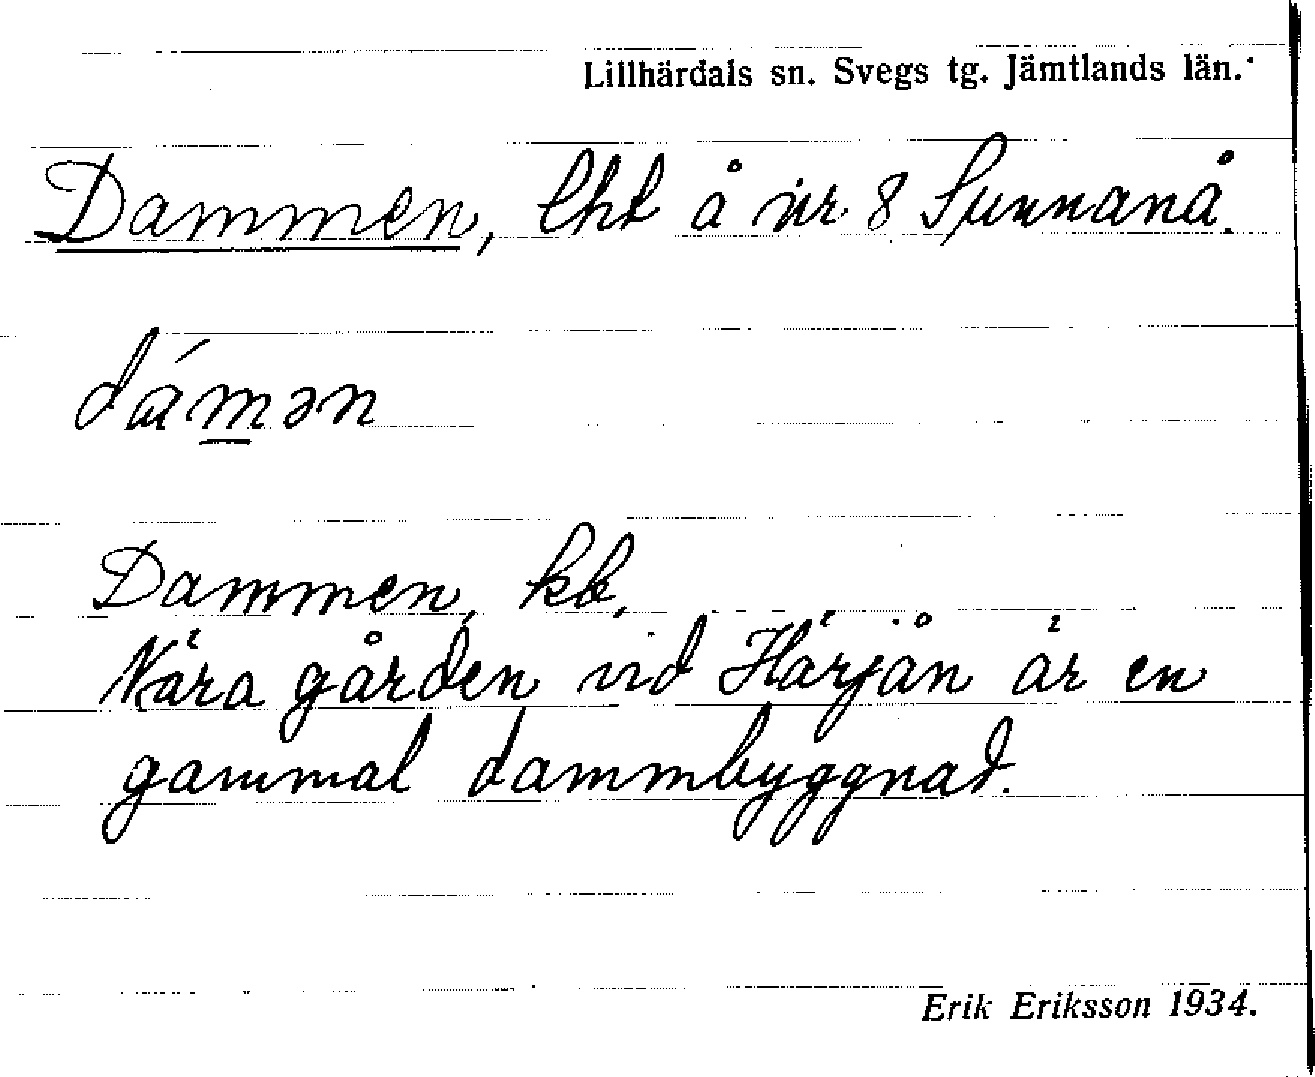 Lillhärdals sn. Svegs tg. Jämtlands län.
Dammen, lht å nr 8 Sunnanå.
dámən
Dammen, kb.
Nära gården vid Härjån är en
gammal dammbyggnad.
Erik Eriksson 1934.